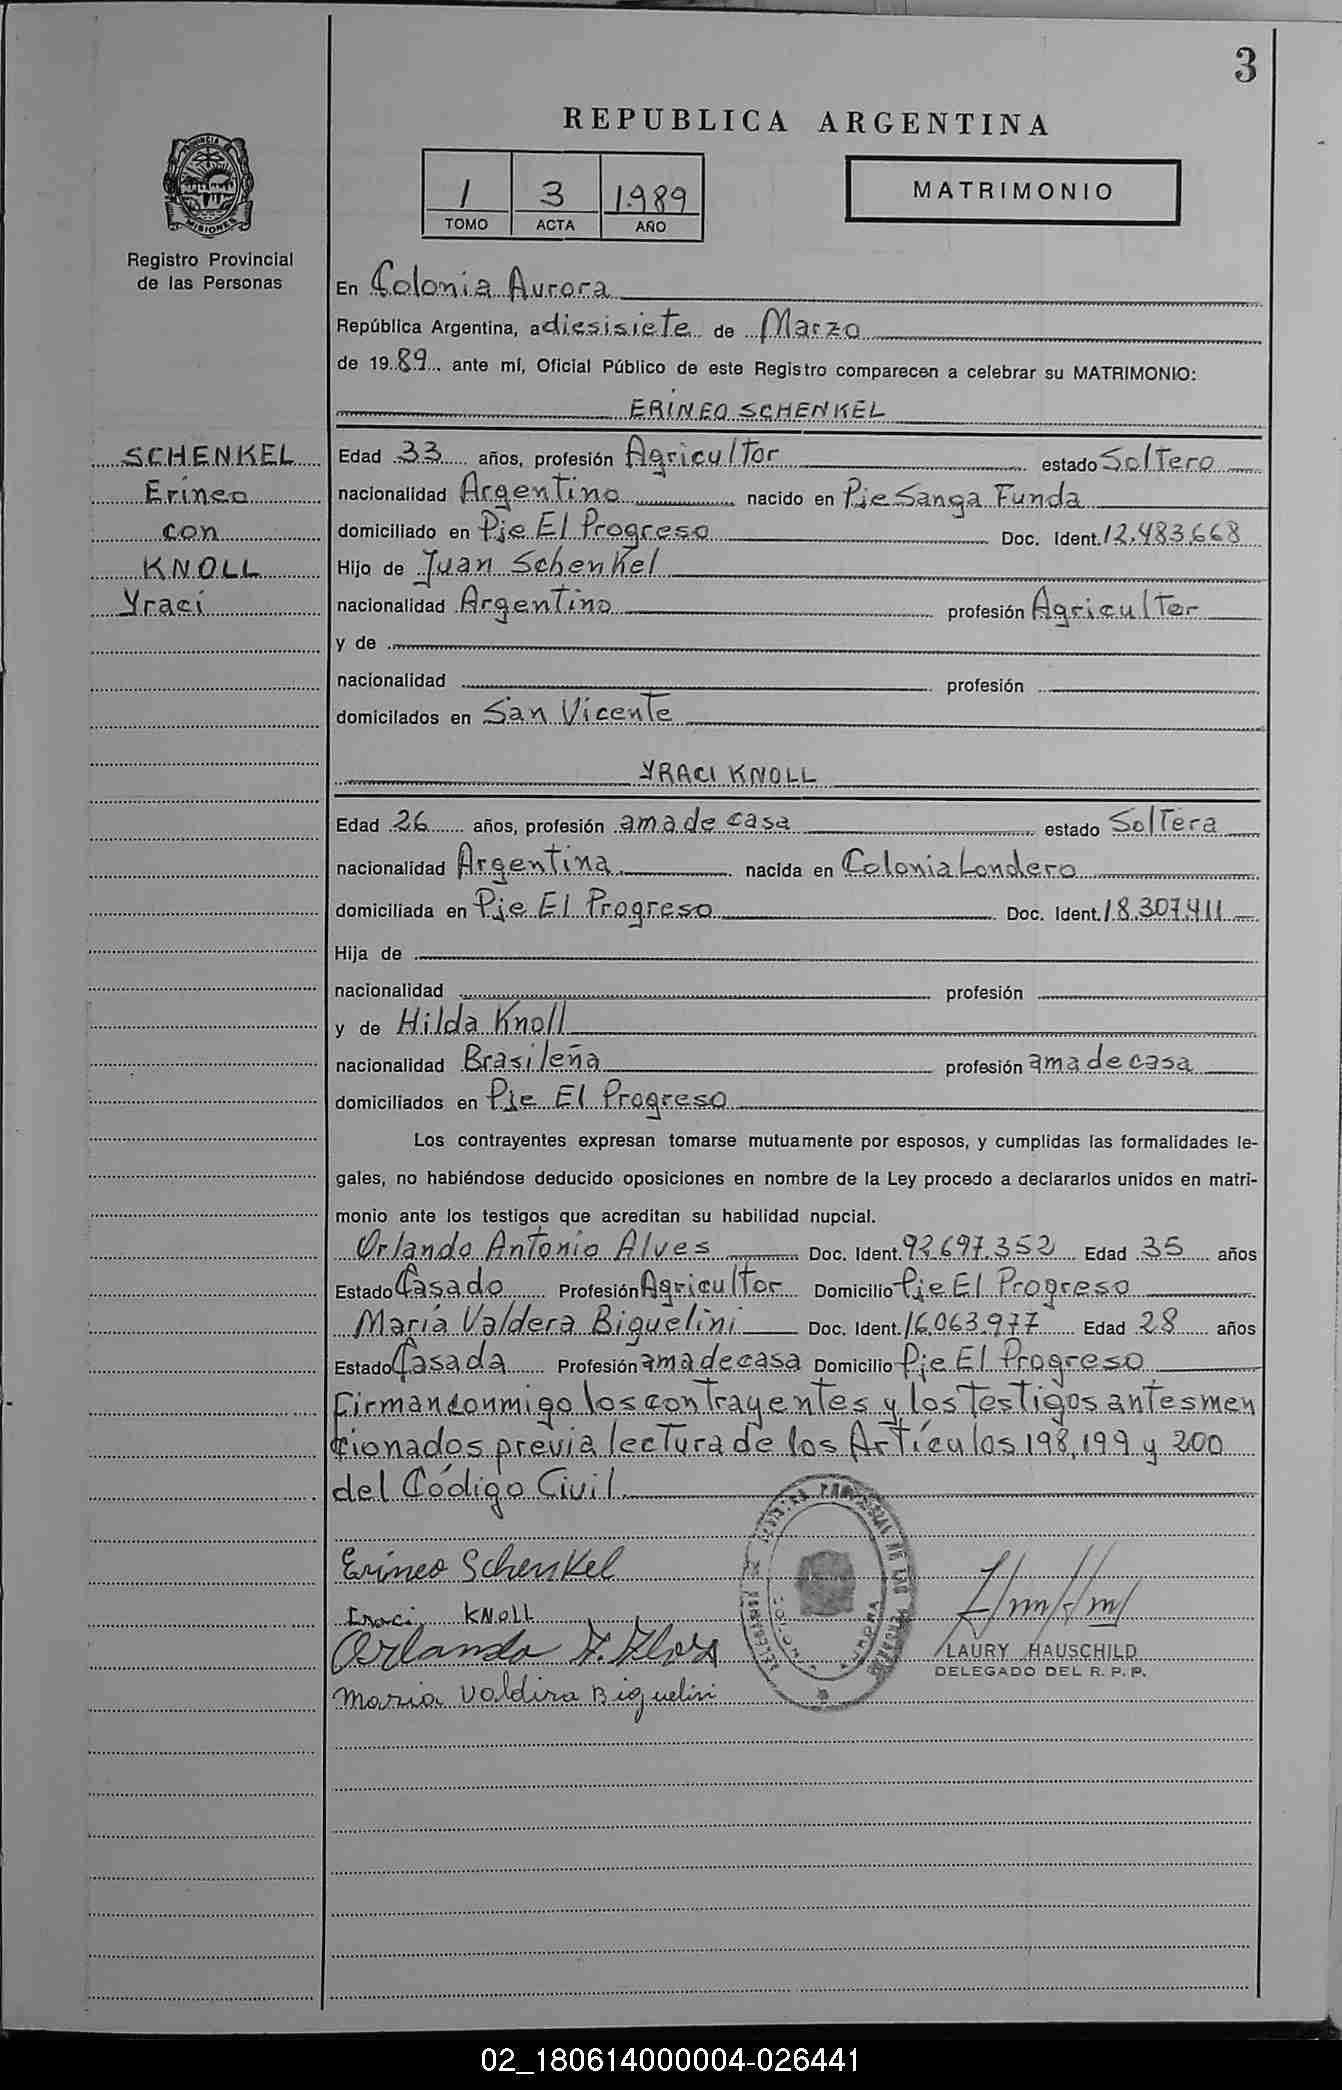 3
REPUBLICA ARGENTINA
1 3 1989
TOMO ACTA AÑO
MATRIMONIO
PROVINCIA DE MISIONES
Registro Provincial
de las Personas
En Colonia Aurora
República Argentina, a diesisiete de Marzo
de 19 89 ante mí, Oficial Público de este Registro comparecen a celebrar su MATRIMONIO:
ERINEO SCHENKEL
SCHENKEL
Erineo
con
KNOLL
Yraci
Edad 33 años, profesión Agricultor estado Soltero
nacionalidad Argentino nacido en Pje Sanga Funda
domiciliado en Pje El Progreso Doc. Ident. 12.483.668
Hijo de Juan Schenkel
nacionalidad Argentino profesión Agricultor
y de
nacionalidad profesión
domicilados en San Vicente
YRACI KNOLL
Edad 26 años, profesión ama de casa estado Soltera
nacionalidad Argentina nacida en Colonia Londero
domiciliada en Pje El Progreso Doc. Ident. 18.307.411
Hija de
nacionalidad profesión
y de Hilda Knoll
nacionalidad Brasileña profesión ama de casa
domiciliados en Pje El Progreso
Los contrayentes expresan tomarse mutuamente por esposos, y cumplidas las formalidades le-
gales, no habiéndose deducido oposiciones en nombre de la Ley procedo a declararlos unidos en matri-
monio ante los testigos que acreditan su habilidad nupcial.
Orlando Antonio Alves Doc. Ident. 92.697.352 Edad 35 años
Estado Casado Profesión Agricultor Domicilio Pje El Progreso
María Valdera Biguelini Doc. Ident. 16.063.977 Edad 28 años
Estado Casada Profesión ama de casa Domicilio Pje El Progreso
Firman conmigo los contrayentes y los testigos antes men
cionados previa lectura de los Artículos 198, 199 y 200
del Código Civil.
Erineo Schenkel
Iraci KNOLL
Orlando
Maria Valdira Biguelini
LAURY HAUSCHILD
DELEGADO DEL R. P. P.
02_180614000004-026441